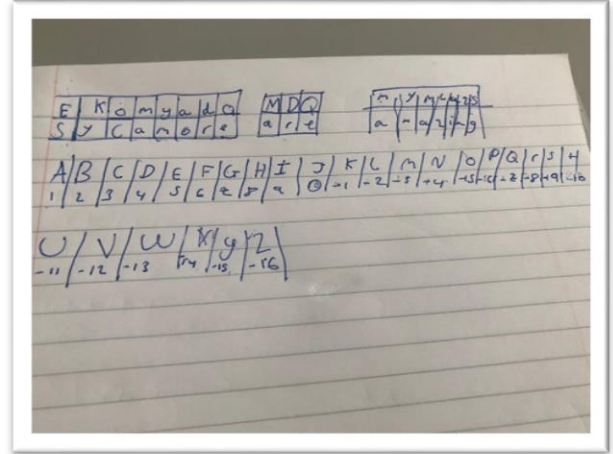 E K O m y a d Q M D Q m y m
S y C a m o r e a r e a m a z i n g
A B C D E F G H I J K L M N O P Q r s t
1 2 3 4 5 6 7 8 9 0 -1 -2 -3 -4 -5 -6 -7 -8 -9 -10
U V W X y Z
-11 -12 -13 -14 -15 -16